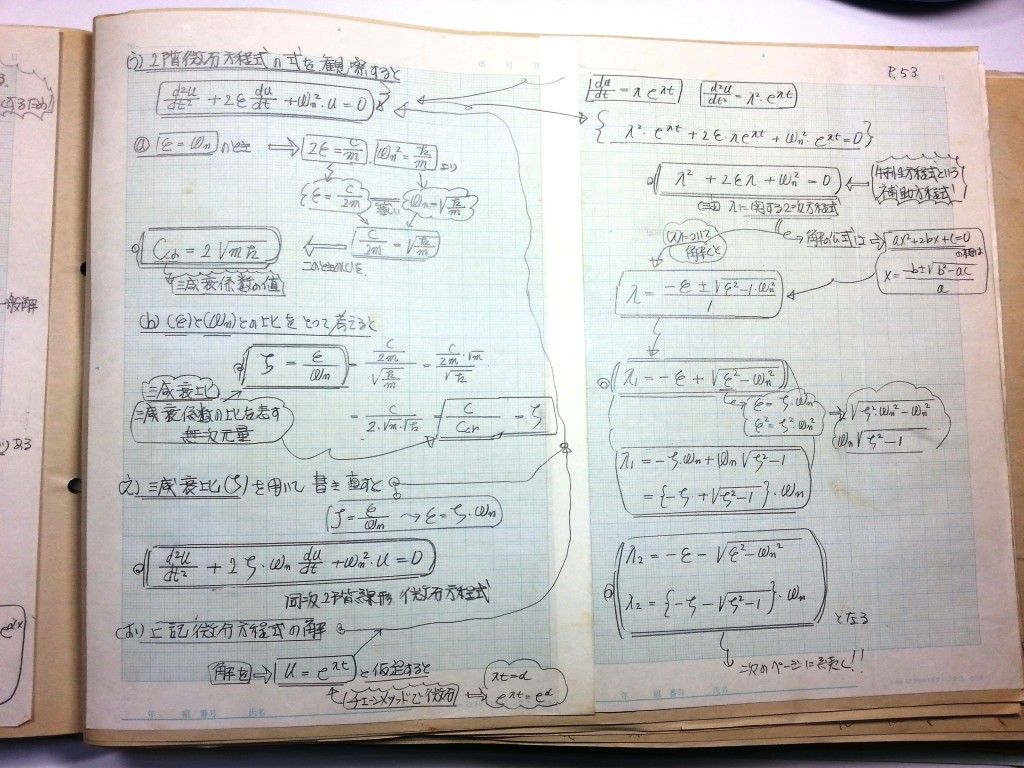 (う) 2階微分方程式の式を観察すると
d²u/dt² + 2ε du/dt + ωn²・u = 0
ⓐ ε = ωn のとき ⇒ 2ε = c/m , ωn² = k/m より
ε = c/2m ωn = √k/m
Ccr = 2√mk ⇐ c/2m = √k/m
このときのCを
減衰係数の値
(b) (ε)と(ωn)との比をとって考えると
ζ = ε/ωn = c/2m / √k/m = c/2m・√m / √k
減衰比
減衰係数の比を表す
無次元量
= c/2・√m・√k = c/Ccr = ζ
(え) 減衰比(ζ)を用いて書き直すと
ζ = ε/ωn → ε = ζ・ωn
d²u/dt² + 2ζ・ωn du/dt + ωn²・u = 0
同次2階線形微分方程式
(お) 上記微分方程式の解
解を → u = e^λt と仮定すると
チェーンメソッドで微分 ↔ λt = α
e^λt = e^α
年 組 番号 氏名
P.53
du/dt = λe^λt d²u/dt² = λ²・e^λt
{ λ²・e^λt + 2ε・λe^λt + ωn²・e^λt = 0 }
λ² + 2ελ + ωn² = 0 ← 特性方程式という
補助方程式!
λに関する2次方程式
(λ)について
解くと
解の公式は ⇒ ax²+2bx+c=0
の解は
x = -b±√b²-ac / a
λ = -ε ± √ε²-1・ωn² / 1
λ₁ = -ε + √ε²-ωn²
ε = ζ・ωn
ε² = ζ²・ωn²
→ √ζ²・ωn²-ωn²
ωn√ζ²-1
λ₁ = -ζ・ωn + ωn√ζ²-1
= {-ζ + √ζ²-1}・ωn
λ₂ = -ε - √ε²-ωn²
λ₂ = {-ζ - √ζ²-1}・ωn
となる
次のページに続く!!
年 組 番号 氏名